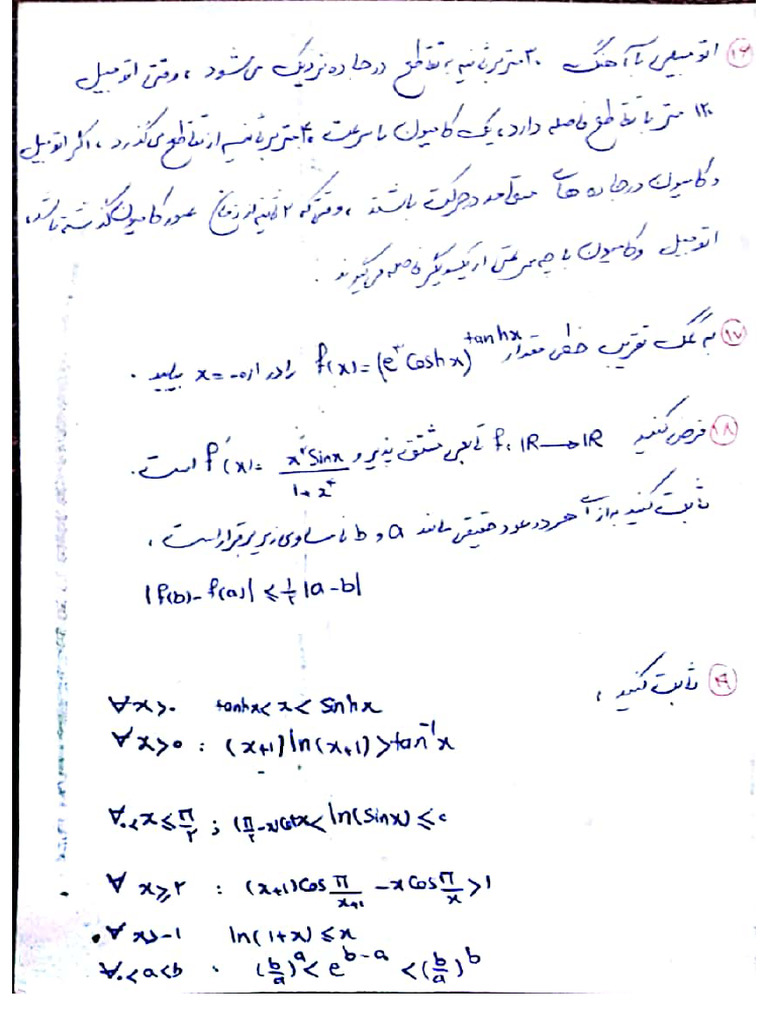 ۱۶ اتومبیلی با آهنگ ۳۰ متر بر ثانیه به تقاطع در جاده نزدیک می‌شود ، وقتی اتومبیل
۱۲۰ متر با تقاطع فاصله دارد ، یک کامیون با سرعت ۴۰ متر بر ثانیه از تقاطع می‌گذرد ، اگر اتومبیل
و کامیون در جاده های متعامد در حرکت باشند ، وقتی که ۲ ثانیه از زمان عبور کامیون گذشته باشد ،
اتومبیل و کامیون با چه سرعتی از یکدیگر فاصله می‌گیرند .
۱۷ به کمک تقریب خطی مقدار f(x)=(e^۲ Cosh x)^tanhx را در x=-۰٫۱ بیابید .
۱۸ فرض کنید f: IR→IR تابعی مشتق پذیر و f'(x)= x^۲ Sinx / ۱+x^۴ است .
ثابت کنید به ازای هر دو عدد حقیقی مانند a و b نامساوی زیر برقرار است ،
|f(b)-f(a)| ≤ ۱/۲ |a-b|
۱۹ ثابت کنید ،
∀x>۰ tanhx < x < Sinhx
∀x>0 : (x+1)ln(x+1) > tan⁻¹x
∀۰<x≤π/۲ ; (π/۲-x)Cotx < ln(Sinx) ≤ ۰
∀ x≥۲ : (x+1)Cos π/x+1 - x Cos π/x > 1
∀ x>-1 ln(1+x) ≤ x
∀۰<a<b . (b/a)^a < e^b-a < (b/a)^b